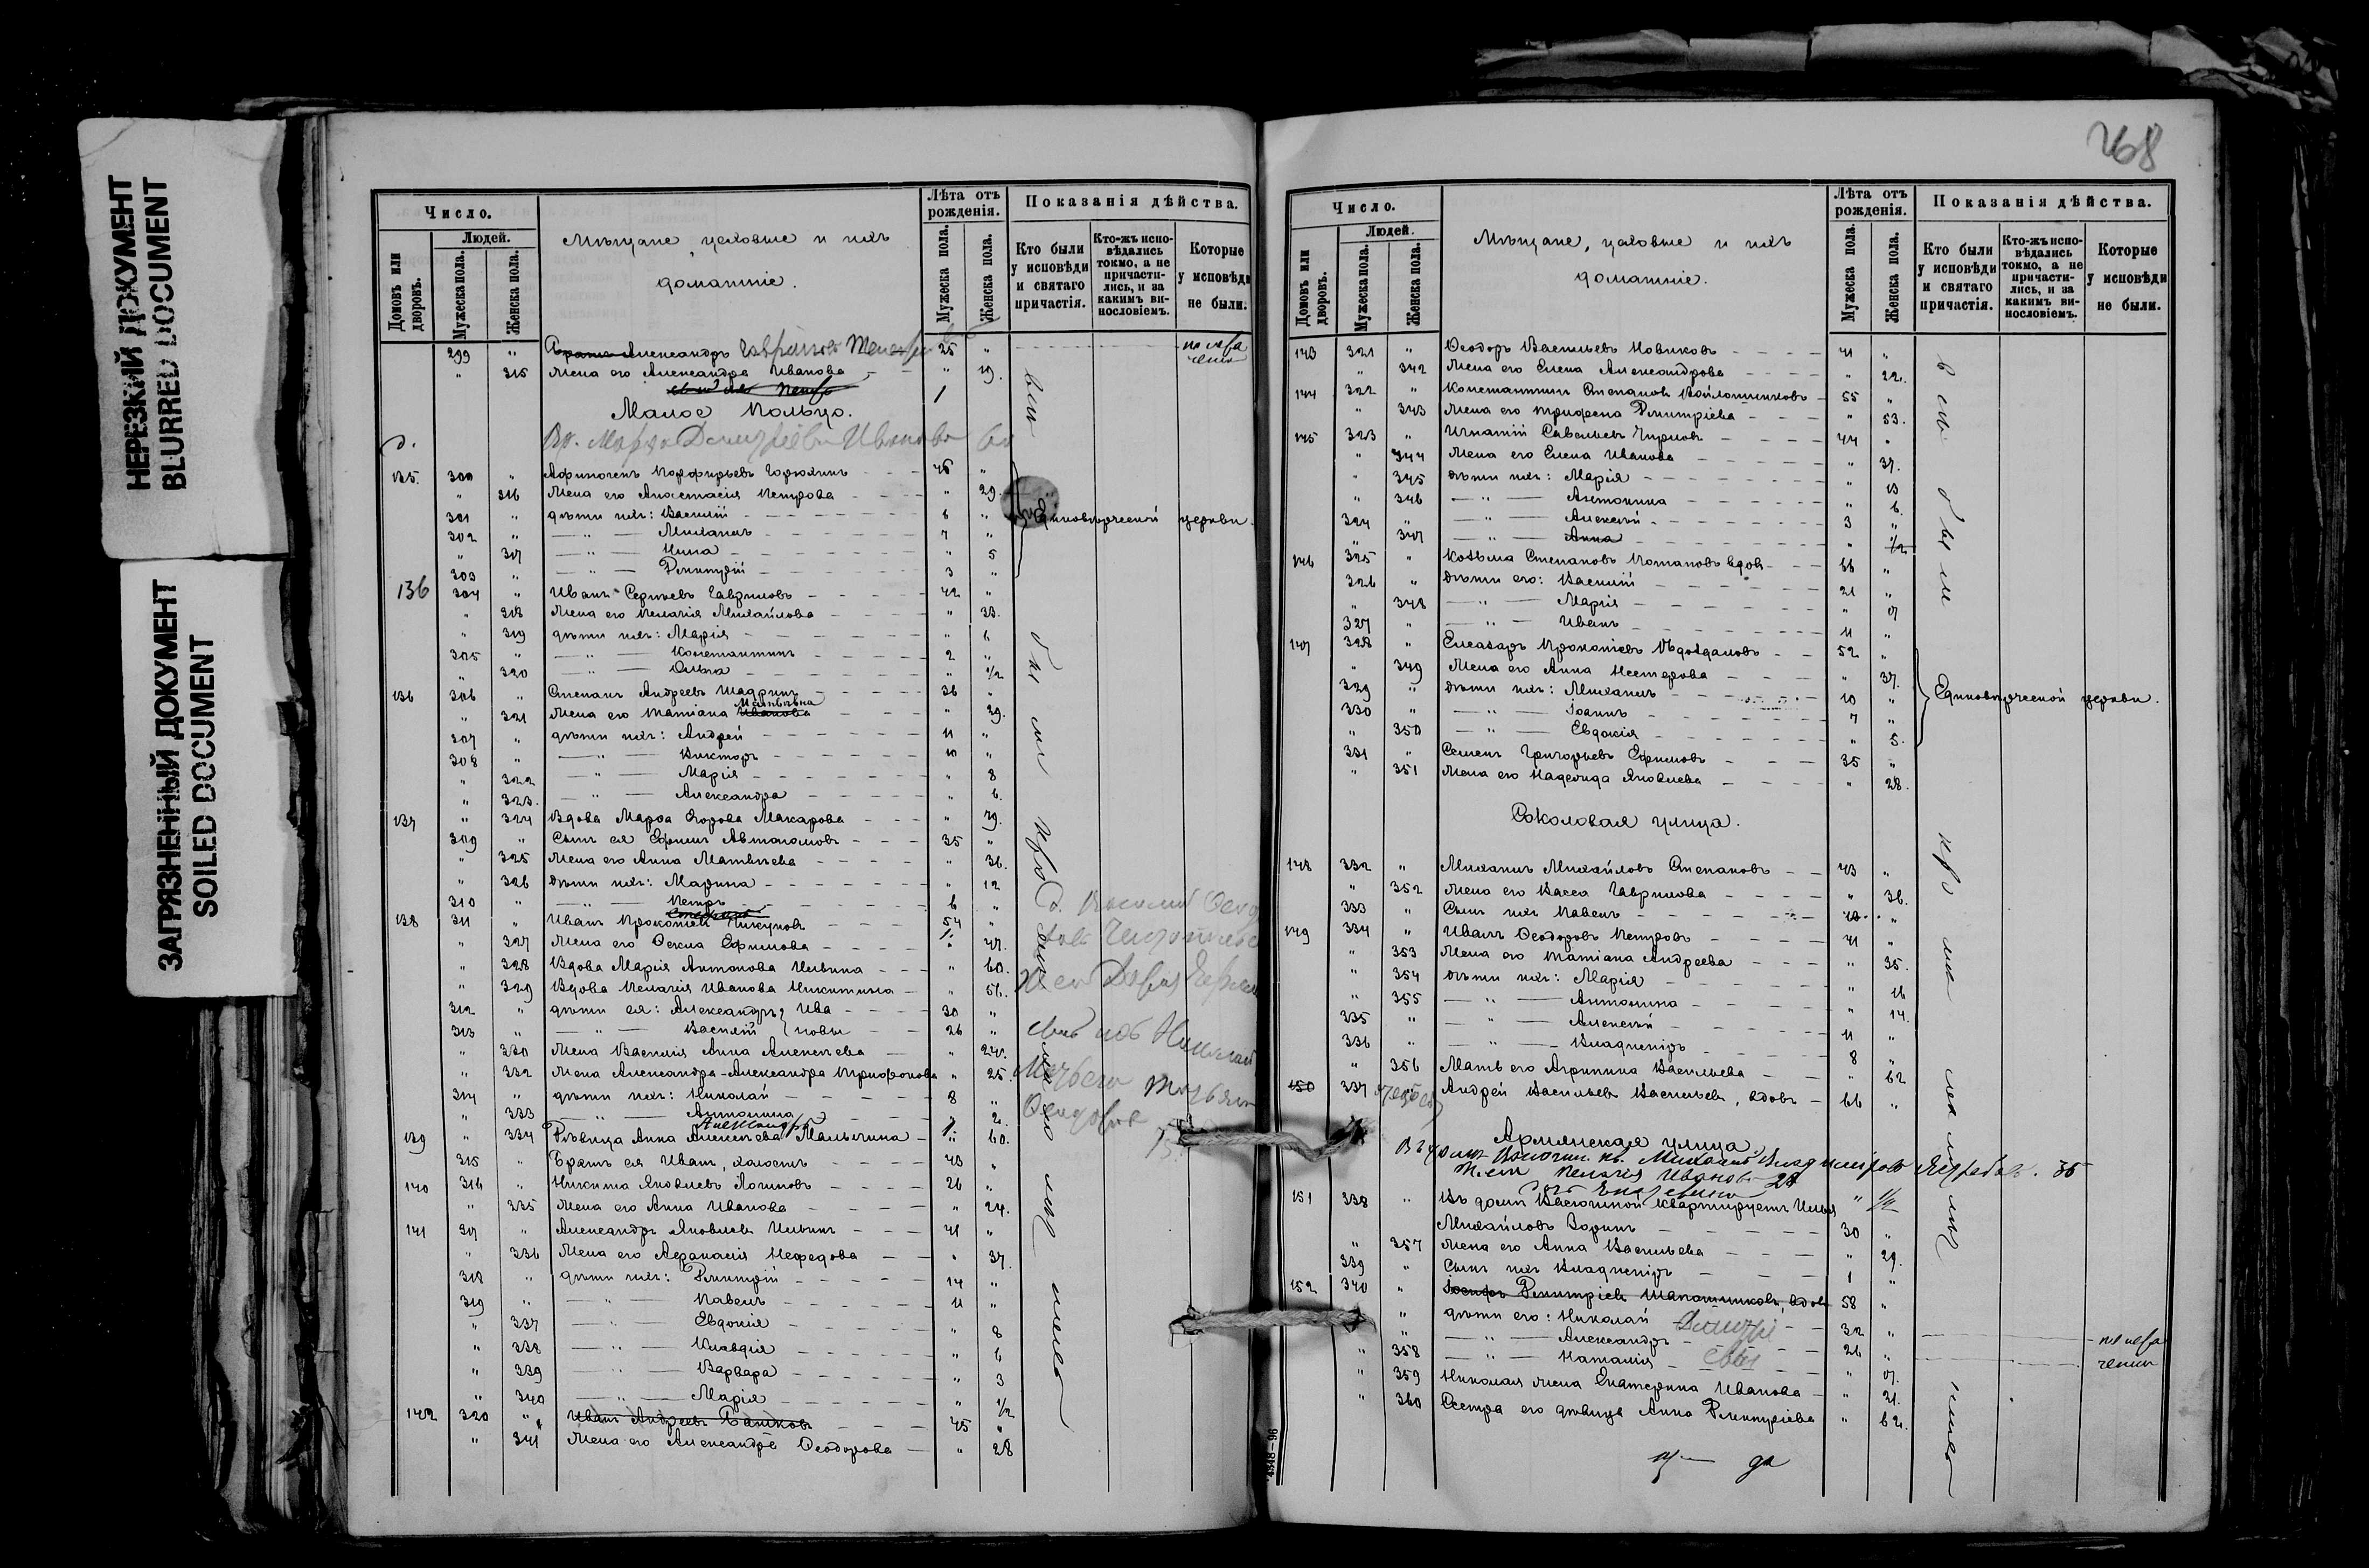 НЕРЕЗКИЙ ДОКУМЕНТ
BLURRED DOCUMENT
ЗАГРЯЗНЕННЫЙ ДОКУМЕНТ
SOILED DOCUMENT
Число.
Людей.
Домовъ или дворовъ.
Мужеска пола.
Женска пола.
Мѣщане, цеховые и ихъ
домашніе.
Лѣта отъ рожденія.
Мужеска пола.
Женска пола.
Показанія дѣйства.
Кто были у исповѣди и святаго причастія.
Кто-жъ исповѣдались токмо, а не причастились, и за какимъ винословіемъ.
Которые у исповѣди не были.
299 " Братъ Александръ 25 "
" 315 Жена его Александра Иванова " 19.
Малое Кольцо.
Вд. Марѳа Димитріева Иванова 60
135. 300 " Афиногенъ Порфирьевъ Горюхинъ 45 "
" 316 Жена его Анастасія Петрова " 29.
301 " дѣти ихъ: Василій 6 "
Единовѣрческой церкви.
302 " — " — Михаилъ 7 "
" 317 — " — Нина " 5
303 " — " — Димитрій 3 "
136 304 " Иванъ Сергѣевъ Гавриловъ 42 "
" 318 Жена его Пелагія Михайлова " 33.
" 319 дѣти ихъ: Марія " 6
305 " — " — Константинъ 2 "
" 320 — " — Ольга " 1/2
136 306 " Степанъ Андреевъ Шадринъ 36 "
Матвѣевна
" 321 Жена его Татіана Иванова " 29.
307 " дѣти ихъ: Андрей 11 "
308 " — " — Викторъ 10 "
" 322 — " — Марія " 8
" 323. — " — Александра " 6.
137 " 324 Вдова Марѳа Егорова Макарова " 79.
309 " Сынъ ея Ефимъ Автономовъ 35 "
" 325 Жена его Анна Матвѣева " 36.
" 326 Дѣти ихъ: Марина " 12
310 " — " — Петръ 6 "
138 311 " Иванъ Прокопіевъ Пикуновъ 54 "
" 327 Жена его Ѳекла Ефимова " 47.
" 328 Вдова Марія Антонова Ильина " 60.
" 329 Вдова Пелагія Иванова Никитина " 56.
312 " дѣти ея: Александръ } Ива 30 "
313 " — " — Василій } новы 26 "
" 330 Жена Василія Анна Алексѣева " 24.
" 332 Жена Александра-Александра Трифонова " 25.
314 " дѣти ихъ: Николай 8 "
" 333 — " — Антонина " 2.
139 " 334 Дѣвица Анна Алексѣева Малыгина " 60.
315 " Братъ ея Иванъ, холостъ 43 "
140 316 " Никита Яковлевъ Логиновъ 26 "
" 335 Жена его Анна Иванова " 24.
141 317 " Александръ Яковлевъ Ильинъ 41 "
" 336 Жена его Аѳанасія Нефедова " 37.
318 " дѣти ихъ: Димитрій 14 "
319 " — " — Павелъ 11 "
" 337 — " — Евдокія " 8
" 338 — " — Клавдія " 6
" 339 — " — Варвара " 3
" 340 — " — Марія " 1/2
142 320 " Иванъ Андреевъ Башковъ 45 "
" 341 Жена его Александра Ѳеодорова " 28
268
Число.
Людей.
Домовъ или дворовъ.
Мужеска пола.
Женска пола.
Мѣщане, цеховые и ихъ
домашніе.
Лѣта отъ рожденія.
Мужеска пола.
Женска пола.
Показанія дѣйства.
Кто были у исповѣди и святаго причастія.
Кто-жъ исповѣдались токмо, а не причастились, и за какимъ винословіемъ.
Которые у исповѣди не были.
143 321 " Ѳеодоръ Васильевъ Новиковъ 41 "
" 342 Жена его Елена Александрова " 22.
144 322 " Константинъ Степановъ Войлошниковъ 55 "
" 343 Жена его Трифена Димитріева " 53.
145 323 " Игнатій Савельевъ Чирковъ 44 "
" 344 Жена его Елена Иванова " 37.
" 345 дѣти ихъ: Марія " 13
" 346 — " — Антонина " 6.
324 " — " — Алексѣй 3 "
" 347 — " — Анна " 1/2
146 325 " Козьма Степановъ Потаповъ вдов. 66 "
326 " дѣти его: Василій 21 "
" 348 — " — Марія " 17
327 " — " — Иванъ 11 "
147 328 " Елеазаръ Прокопіевъ 52 "
" 349 Жена его Анна Нестерова " 37.
329 " дѣти ихъ: Михаилъ 10 "
Единовѣрческой церкви.
330 " — " — Іоаннъ 7 "
" 350 — " — Евдокія " 5.
331 " Семенъ Григорьевъ Ефимовъ 35 "
" 351 Жена его Надежда Яковлева " 28.
Соколовая улица.
148 332 " Михаилъ Михайловъ Степановъ 43 "
" 352 Жена его Васса Гаврилова " 36.
333 " Сынъ ихъ Павелъ "
149 334 " Иванъ Ѳеодоровъ Петровъ 41 "
" 353 Жена его Татіана Андреева " 35.
" 354 дѣти ихъ: Марія " 16
" 355 — " — Антонина " 14.
335 " — " — Алексѣй 11 "
336 " — " — Владиміръ 8 "
" 356 Мать его Агриппина Васильева " 62
150 337 Андрей Васильевъ Васильевъ, вдовъ 66 "
Армянская улица
Михаилъ Владиміровъ 35
Жена Пелагія Иванова
151 338 " Въ домѣ квартируетъ Илья
Михайловъ Зоринъ 30 "
" 357 Жена его Анна Васильева " 29.
339 " Сынъ ихъ Владиміръ 1 "
152 340 " Іосифъ Димитріевъ Шапошниковъ, вдов 58 "
" дѣти его: Николай 32 "
" — " — Александръ 26 "
" 358 — " — Наталія " 17.
" 359 Николая жена Екатерина Иванова " 21.
" 360 Сестра его дѣвица Анна Димитріева " 62.
4818—96